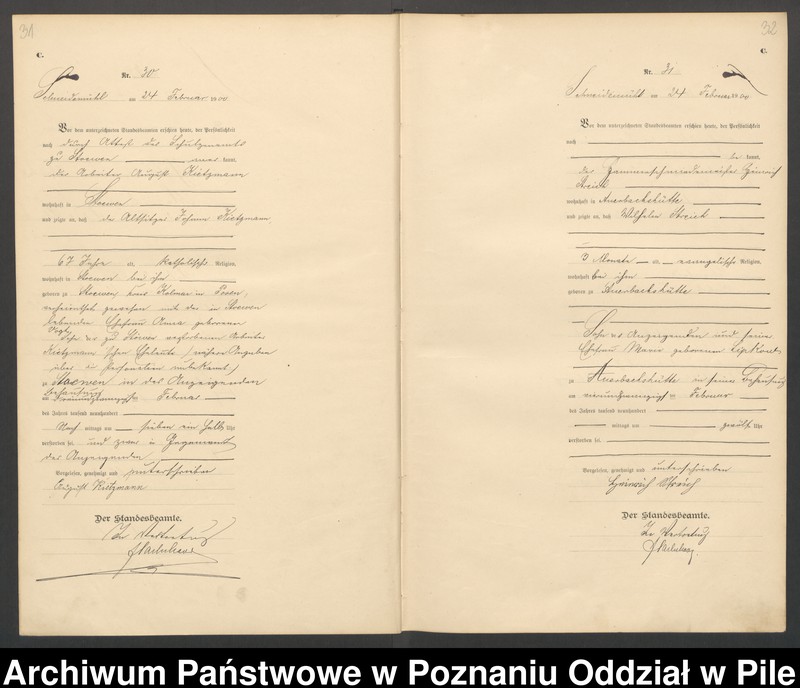 31
C.
Nr. 30
Schneidemühl am 24 Februar 1900
Vor dem unterzeichneten Standesbeamten erschien heute, der Persönlichkeit
nach durch Attest des Schulzenamts
zu Stoewen kannt,
der Arbeiter August Kietzmann
wohnhaft in Stoewen
und zeigte an, daß der Altsitzer Johann Kietzmann,
67 Jahre alt, katholischer Religion,
wohnhaft in Stoewen bei ihm
geboren zu Stoewen Kreis Kolmar in Posen,
verheirathet gewesen mit der in Stoewen
lebenden Ehefrau Anna geborenen
Sohn der zu Stoewen verstorbenen Arbeiter
Kietzmann schen Eheleute (nähere Angaben
über die Personalien unbekannt)
zu Stoewen in des Anzeigenden
Behausung
am Februar
des Jahres tausend neunhundert
Nach mittags um sieben ein halb Uhr
verstorben sei und zwar in Gegenwart
des Anzeigenden
Vorgelesen, genehmigt und unterschrieben
August Kietzmann
Der Standesbeamte.
In Vertretung
32
C.
Nr. 31
Schneidemühl am 24 Februar 1900
Vor dem unterzeichneten Standesbeamten erschien heute, der Persönlichkeit
nach
be kannt,
der Heinrich
Streich
wohnhaft in Auerbachshütte
und zeigte an, daß Wilhelm Streich
3 Monate alt, evangelischer Religion,
wohnhaft bei ihm
geboren zu Auerbachshütte
Sohn des Anzeigenden und seiner
Ehefrau geborenen
zu Auerbachshütte in seiner Behausung
am Februar
des Jahres tausend neunhundert
mittags um zwölf Uhr
verstorben sei
Vorgelesen, genehmigt und unterschrieben
Heinrich Streich
Der Standesbeamte.
In Vertretung
Archiwum Państwowe w Poznaniu Oddział w Pile